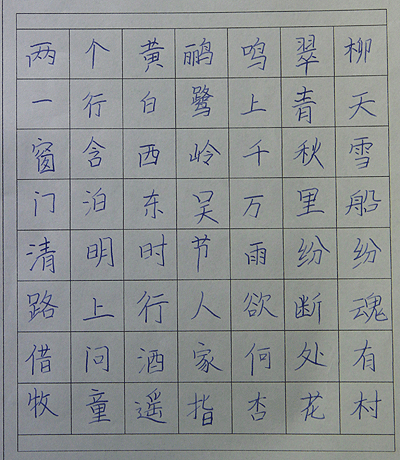 两个黄鹂鸣翠柳
一行白鹭上青天
窗含西岭千秋雪
门泊东吴万里船
清明时节雨纷纷
路上行人欲断魂
借问酒家何处有
牧童遥指杏花村